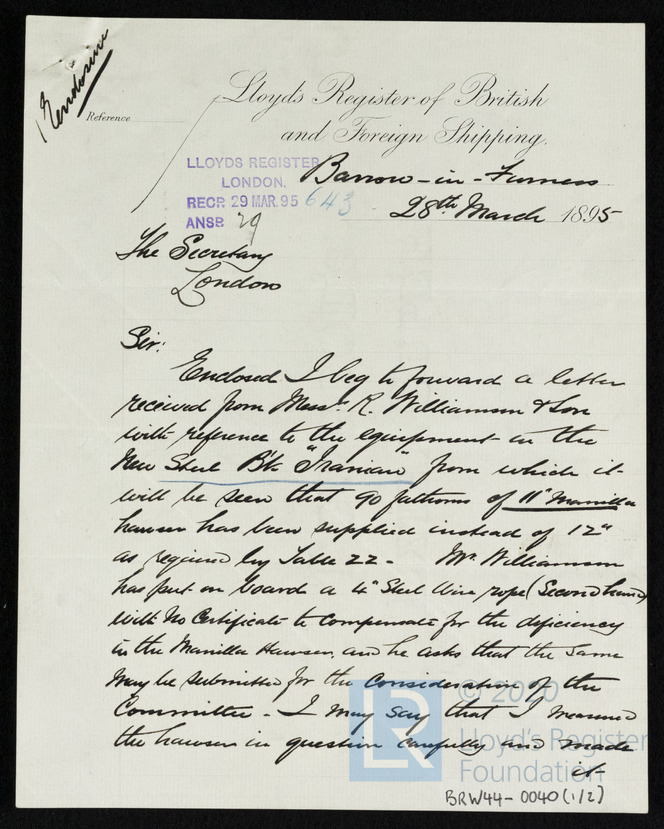 1 Enclosure
Reference
Lloyd's Register of British
and Foreign Shipping.
LLOYDS REGISTER
LONDON.
RECR 29 MAR. 95 643
ANSR 29
Barrow-in-Furness
28th March 1895
The Secretary
London
Sir:
Enclosed I beg to forward a letter
received from Messrs. R. Williamson & Son
with reference to the equipment in the
New Steel Bk "Iranian" from which it
will be seen that 90 fathoms of 11" Manilla
hawser has been supplied instead of 12"
as required by Table 22 - Mr. Williamson
has put on board a 4" Steel Wire rope (Second hand)
with No Certificate to compensate for the deficiency
in the Manilla Hawser, and he asks that the same
may be submitted for the consideration of the
Committee - I may say that I measured
the hawser in question carefully and made
it
© 2020
Lloyd's Register
Foundation
LR
BRW44-0040(1/2)